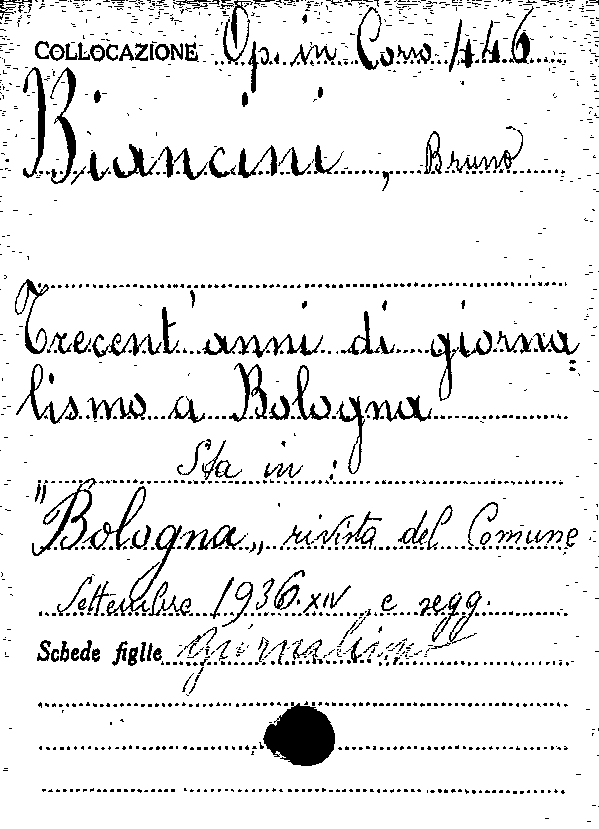 COLLOCAZIONE Op. in Corso 446
Biancini, Bruno
Trecent'anni di giorna=
lismo a Bologna
Sta in:
"Bologna„ rivista del Comune
Settembre 1936.XIV e segg.
Schede figlie giornalismo